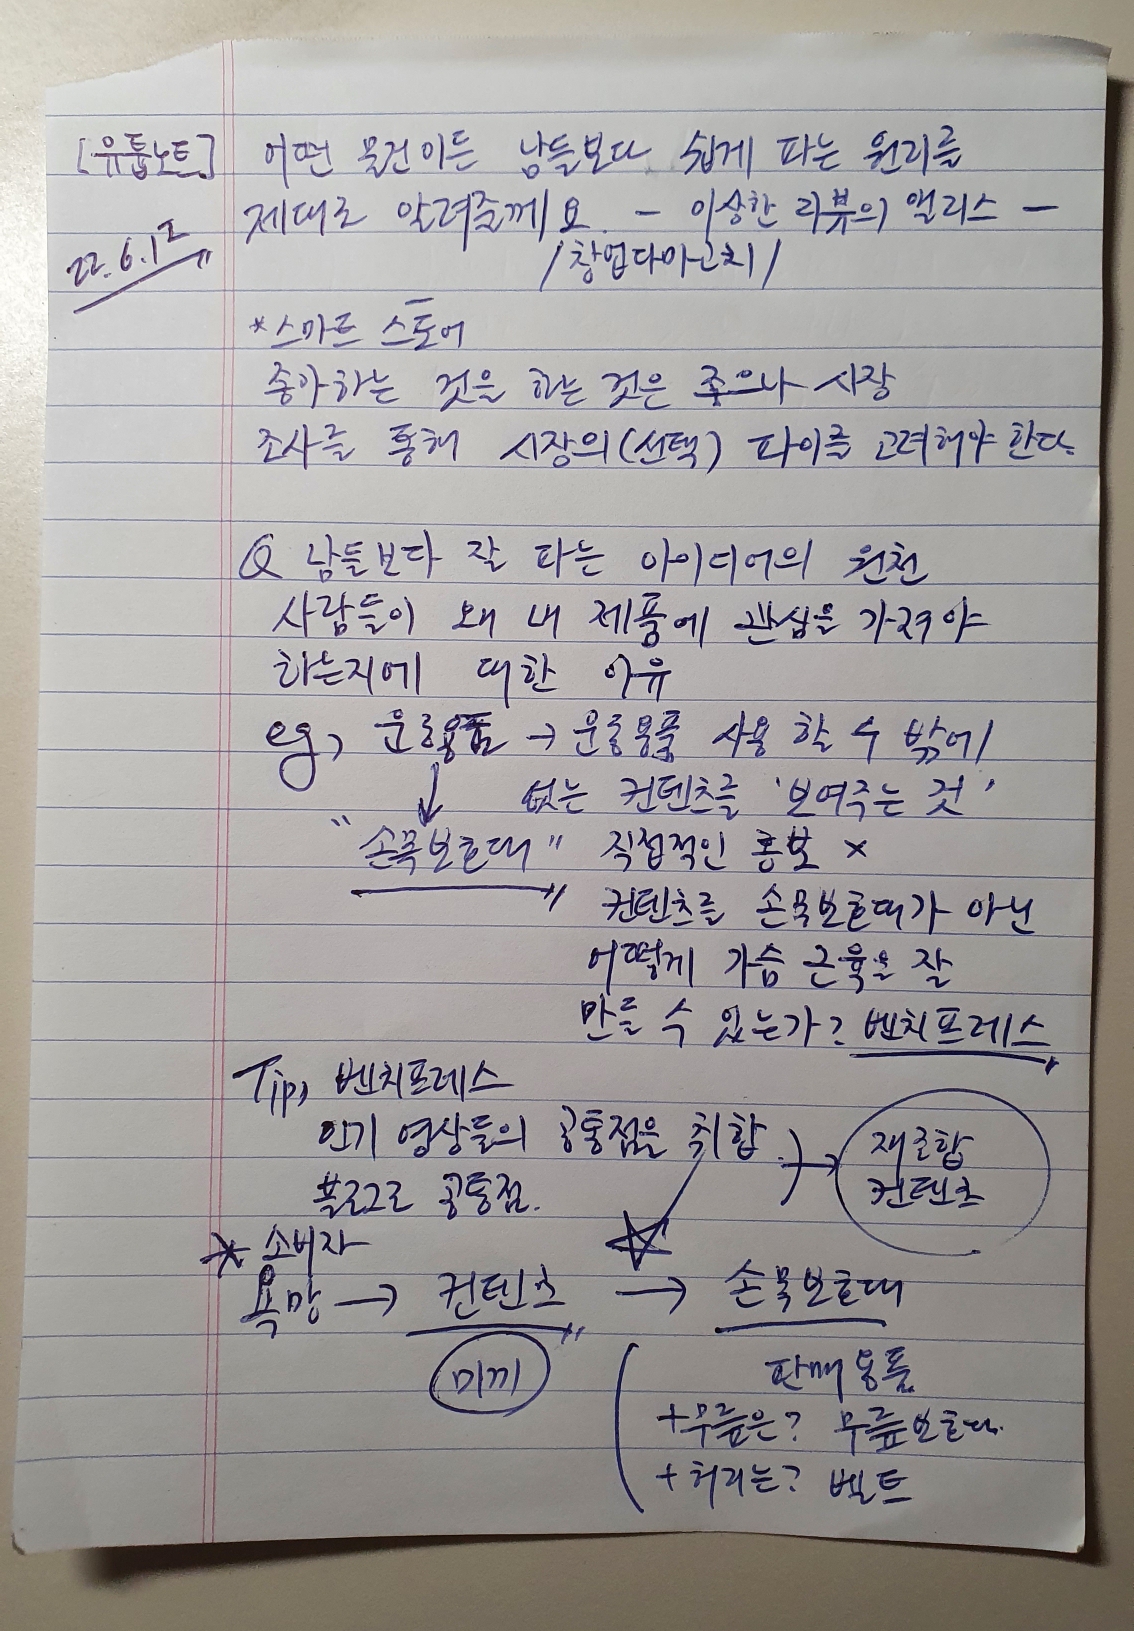 [유튭노트] 어떤 물건이든 남들보다 쉽게 파는 원리를
22.6.12 제대로 알려줄께요. - 이상한 리뷰의 앨리스 -
/창업다마고치/
*스마트 스토어
좋아하는 것을 하는 것은 좋으나 시장
조사를 통해 시장의(선택) 파이를 고려해야 한다.
Q 남들보다 잘 파는 아이디어의 원천
사람들이 왜 내 제품에 관심을 가져야
하는지에 대한 이유
eg, 운동용품 → 운동용품 사용 할 수 밖에
없는 컨텐츠를 '보여주는 것'
"손목보호대" 직접적인 홍보 ×
컨텐츠를 손목보호대가 아닌
어떻게 가슴 근육을 잘
만들 수 있는가? 벤치프레스
Tip, 벤치프레스
인기 영상들의 공통점을 취합
블로그로 공통점.
→ 재조합
컨텐츠
* 소비자
욕망 → 컨텐츠 → 손목보호대
미끼
판매용품
+무릎은? 무릎보호대.
+허리는? 벨트